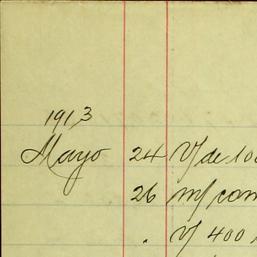 1913
Mayo 24 V/ de 100
26 m/ com
. v/ 400